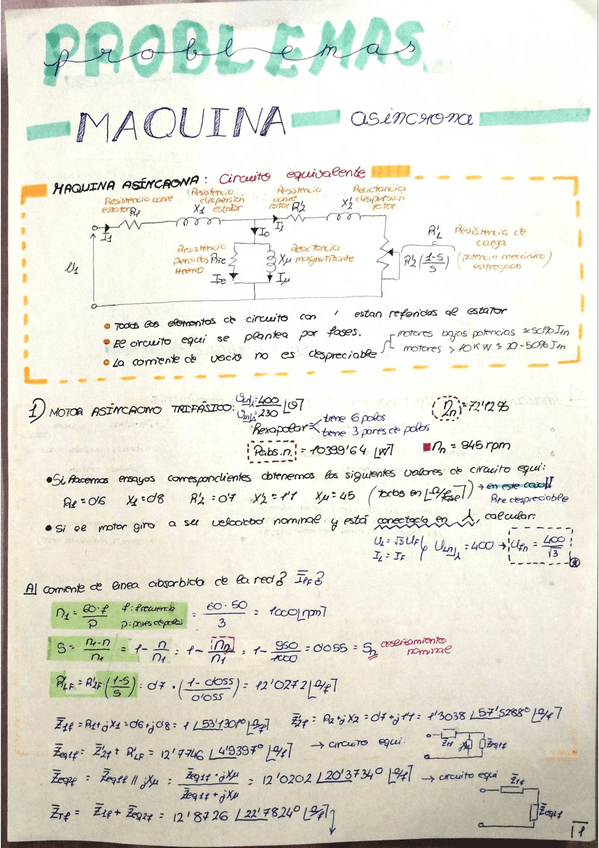 PROBLEMAS
problemas.
MAQUINA asíncrona
MAQUINA ASÍNCRONA: Circuito equivalente
Resistencia cobre estator
Resistencia dispersión estator
Resistencia cobre rotor
Reactancia dispersión rotor
R1 X1 R2' X2'
I1 I0 I2'
Resistencia perdidas hierro
RFe Xμ
Reactancia magnetizante
IFe Iμ
U1
R'L Resistencia de carga
R2'(1-S/S) (potencia mecánica) entregada
• Todos los elementos de circuito con ' estan referidos al estator
• El circuito equi se plantea por fases.
• La corriente de vacio no es despreciable
motores bajas potencias ≈ 50% In
motores > 10KW ≈ 20-50% In
1) MOTOR ASÍNCRONO TRIFÁSICO: = 400 / = 230 [V]
ηn = 72'12%
Hexapolar
tiene 6 polos
tiene 3 pares de polos
Pabs.n. = 10399'64 [W]
nn = 945 rpm
• Si hacemos ensayos correspondientes obtenemos los siguientes valores de circuito equi:
R1 = 0'6 X1 = 0'8 R2' = 0'7 X2' = 1'1 Xμ = 45 (todos en [Ω/fase]) → en este caso!! RFe despreciable
• Si el motor gira a su velocidad nominal y está conectado en , calcular:
UL = √3 UF
IL = IF
= 400 → UFn = 400/√3
A) corriente de linea absorbida de la red?
n1 = 60·f/P f: frecuencia p: pares de polos = 60·50/3 = 1000 [rpm]
S = n1-n/n1 = 1 - n/n1 = 1 - nn/n1 = 1 - 950/1000 = 0'055 = Sn deslizamiento nominal
R'LF = R'2F (1-S/S) = 0'7 · (1-0'055/0'055) = 12'0272 [Ω/f]
Z1f = R1 + jX1 = 0'6 + j0'8 = 1 |53'1301° [Ω/f] Z'2f = R2 + jX2 = 0'7 + j1'1 = 1'3038 |57'5288° [Ω/f]
Zeq1f = Z'2f + R'LF = 12'7746 |4'9397° [Ω/f] → circuito equi:
Zeq2f = Zeq1f // jXμ = Zeq1f · jXμ / Zeq1f + jXμ = 12'0202 |20'3734° [Ω/f] → circuito equi
Z1f Zeq1f
ZTf = Z1f + Zeq2f = 12'8726 |22'7824° [Ω/f]
Z1f Zeq2f